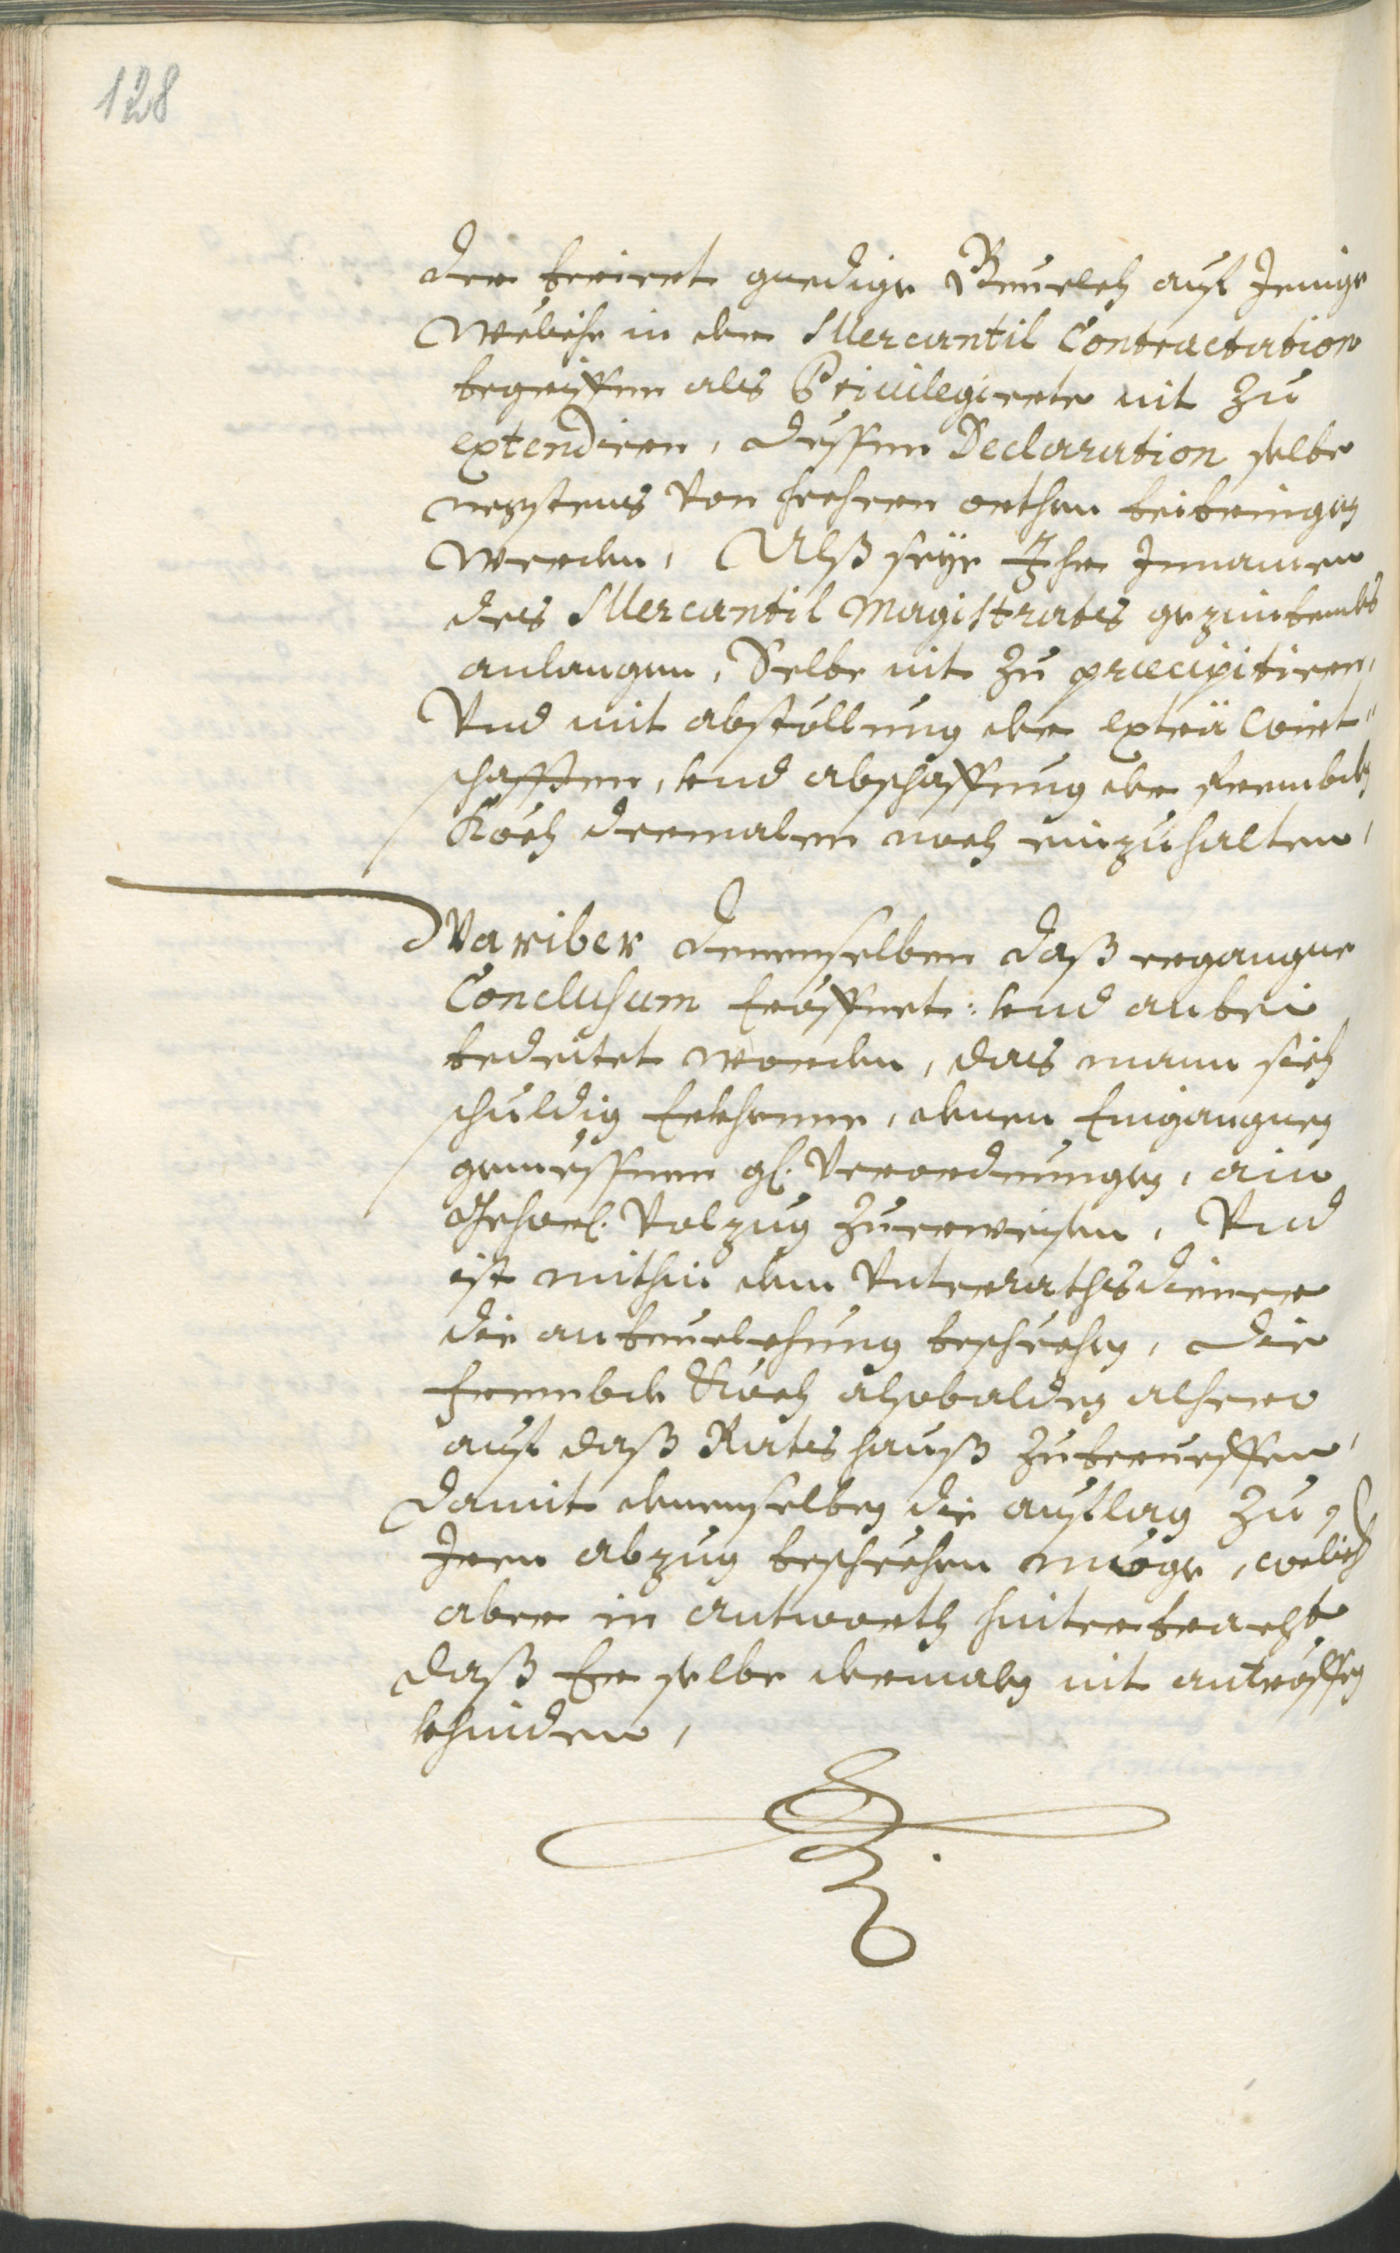 128
der berirt gnedige Beuelch auf Jenige
Weliche in der Mercantil Contractation
begriffen als Priuilegierte nit zu
extendiern, dessen Declaration selbe
negstens von hechern orthen beibringen
werden, Alß seye Ihr Innamen
des Mercantil Magistrats gezimbents
anlangen, Selbe nit zu præcipitiern,
Vnd mit abstöllung der exträ Wirt-
schafften, vnd abschaffung der frembden
Köch dermalen noch einzuhalten,
Wariber denenselben daß ergangne
Conclusum Eröffnet: vnd anbei
bedeitet worden, das mann sich
schuldig Erkhenne, denen Eingangnen
gemessnen gl. Verordnungen, ain
Gehorl. Volzug zuerweisen, Vnd
ist mithin dem Vnterrathsdiener
die anbeuelchung beschechen, die
frembde Köch alsobalden alhero
auf daß Rats hauß zuberueffen,
damit denenselben die auflag zu
Iren abzug beschechen möge, welich
aber in antworth hinterbracht
daß Er selbe dermalen nit antröffen
khinden,